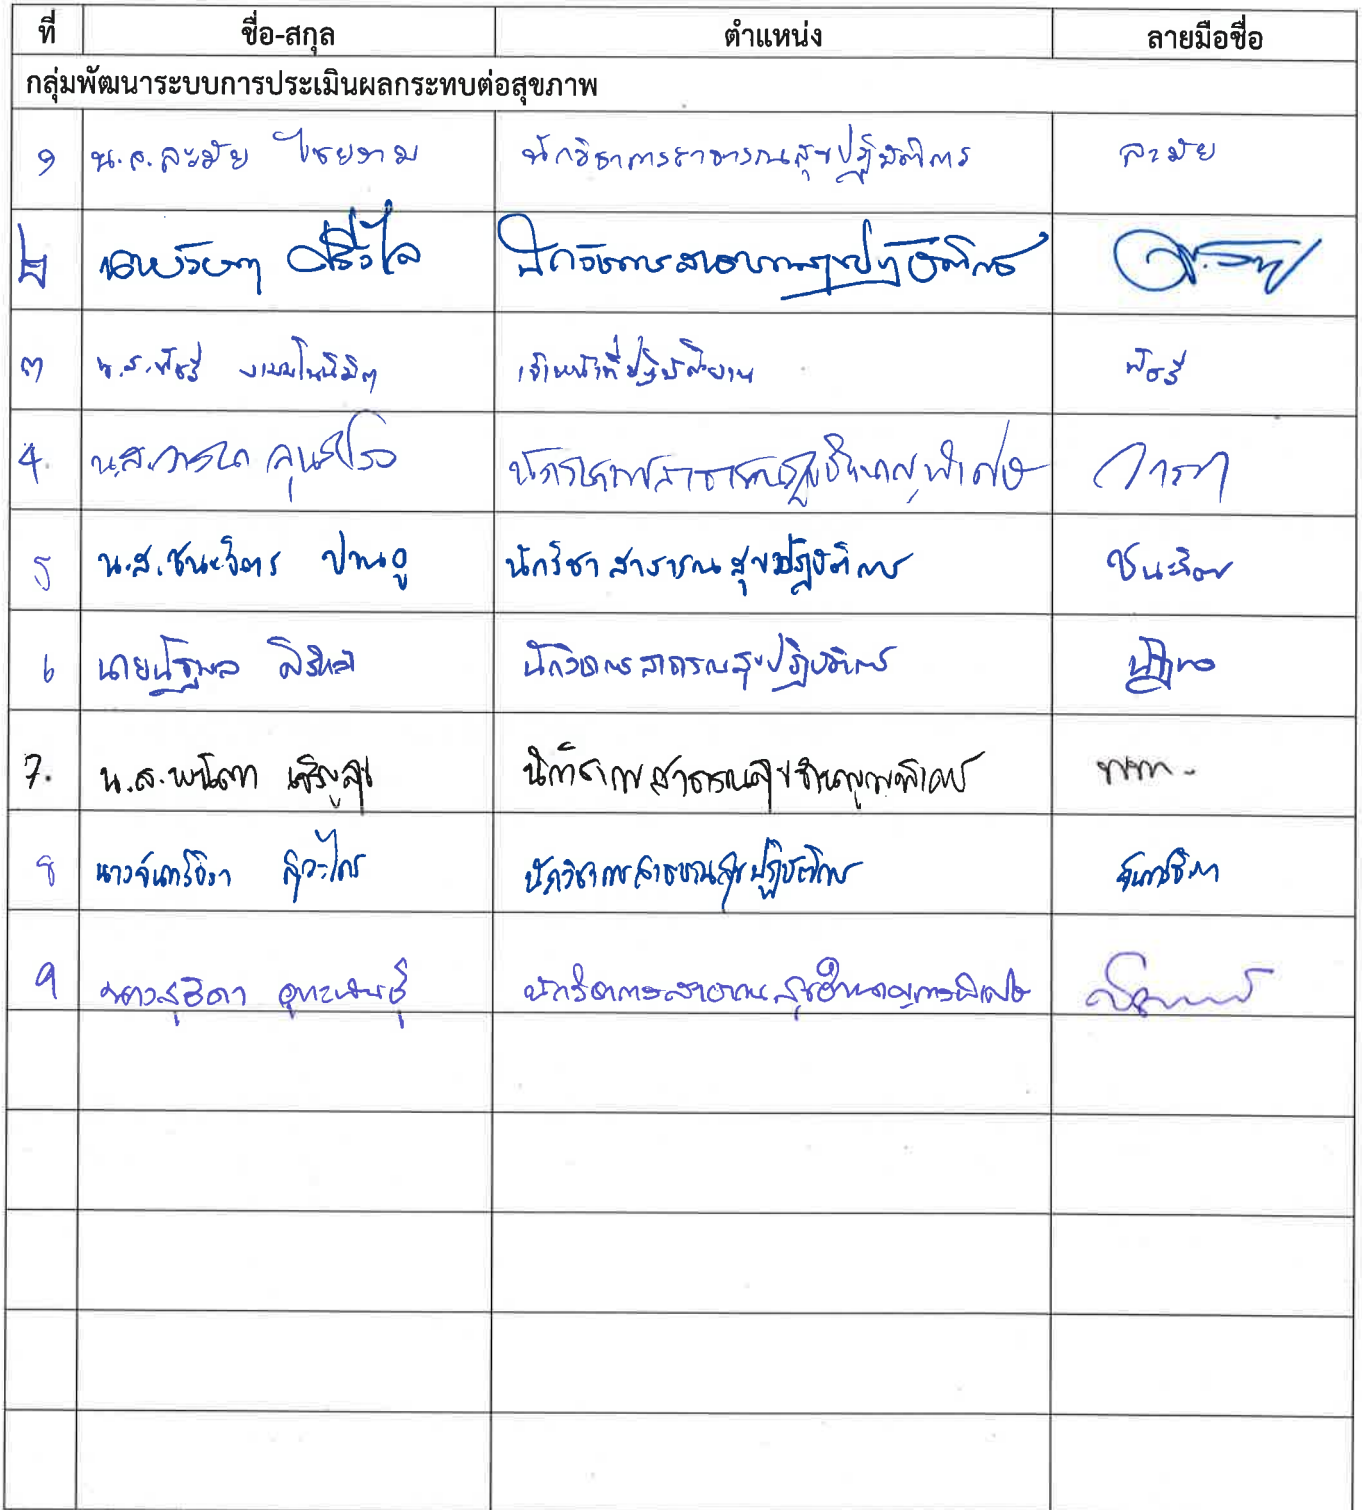 ที่ ชื่อ-สกุล ตำแหน่ง ลายมือชื่อ
กลุ่มพัฒนาระบบการประเมินผลกระทบต่อสุขภาพ
๑ น.ส.ละมัย ไชยงาม นักวิชาการสาธารณสุขปฏิบัติการ ละมัย
๒ นักวิชาการสาธารณสุขปฏิบัติการ
๓ น.ส.พัชรี เจ้าหน้าที่ปฏิบัติงาน พัชรี
4. น.ส. นักวิชาการสาธารณสุขชำนาญพิเศษ
5 น.ส.ชนะจิตร ปานอู นักวิชาสาธารณสุขปฏิบัติการ ชนะจิตร
6 นายณัฐพล นักวิชาการสาธารณสุขปฏิบัติการ
7. น.ส.พนิตา เจริญสุข นักวิชาการสาธารณสุขชำนาญการพิเศษ
8 นางจันทร์ธิรา นักวิชาการสาธารณสุขปฏิบัติการ
9 นางสุธิดา อุทะพันธุ์ นักวิชาการสาธารณสุขชำนาญการพิเศษ